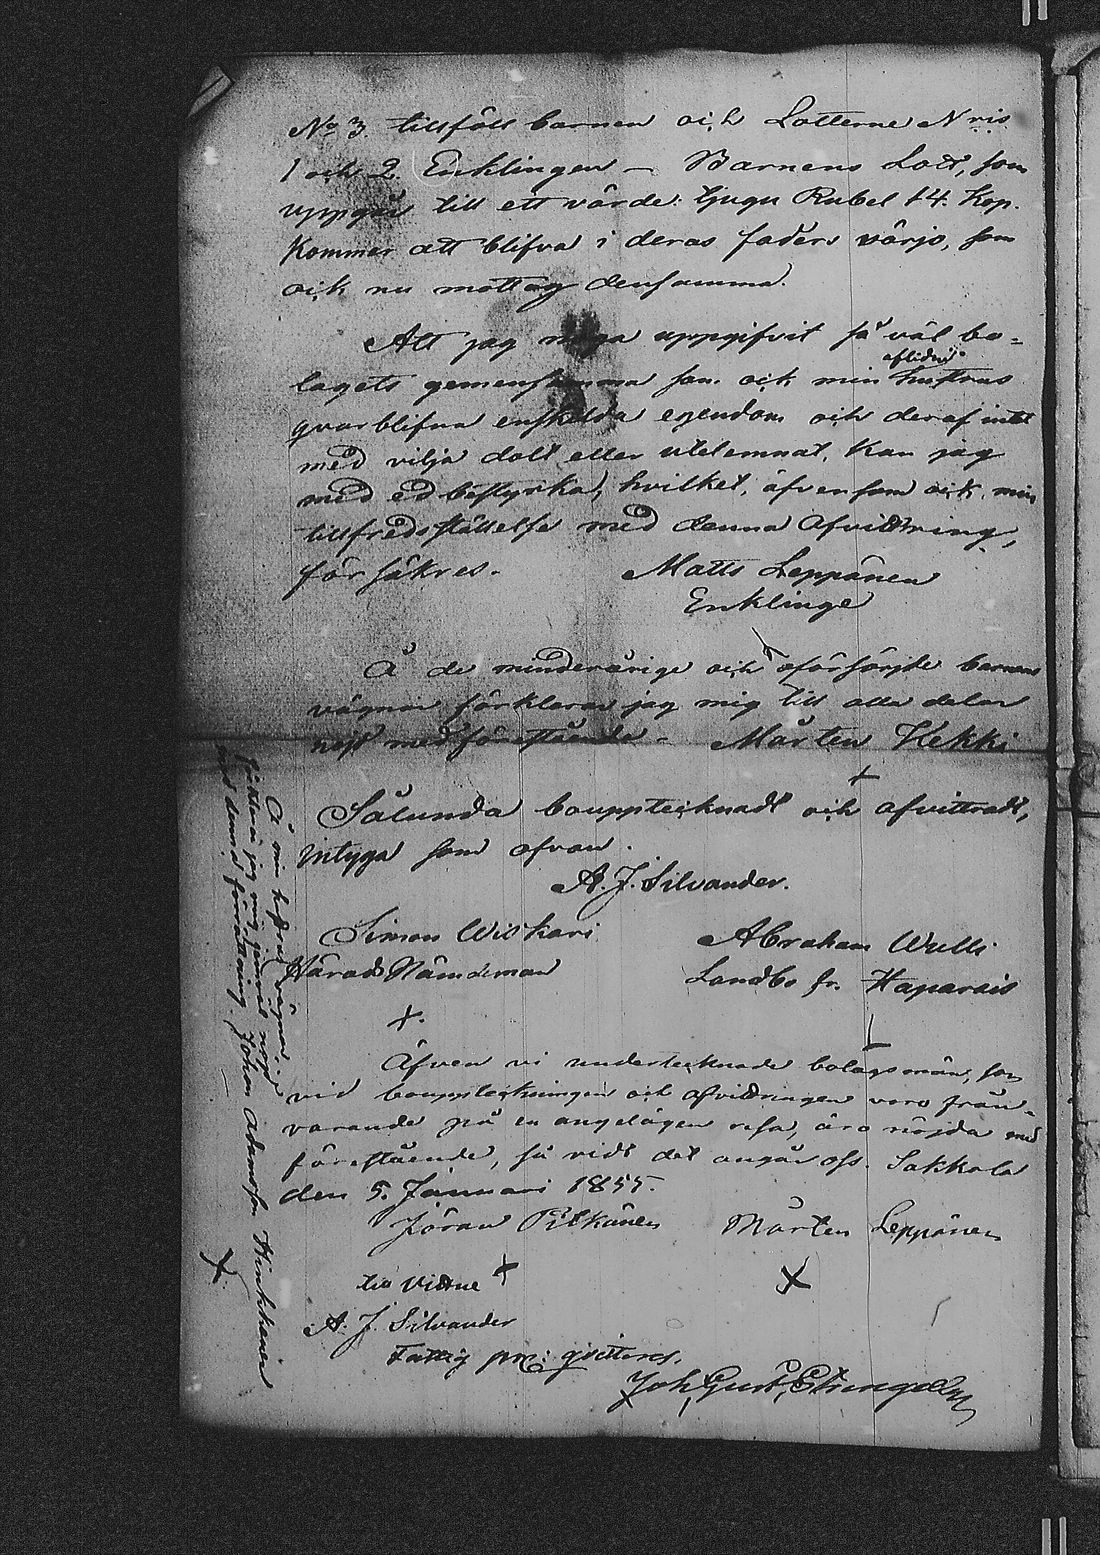 No 3 tillföll barnen och Lotterne N ris
1 och 2. Enklingen — Barnens Lott, som
uppgår till ett värde: tjugu Rubel 14. Kop.
Kommer att blifva i deras faders värjo, som
ock nu mottog densamma.
Att jag noga uppgifvit så väl bo=
lagets gemensamma som ock min aflidne hustrus
qvarblifna enskilda egendom och deraf intet
med vilja dolt eller utelemnat, kan jag
med ed bestyrka, hvilket, äfvensom ock min
tillfredsställelse med denna afvittring,
försäkres.
Matts Leppänen
Enklinge
Å de minderårige och oförsörjde barnens
vägnar förklarar jag mig till alla delar
nöjd med förestående - Mårten Kekki
+
Sålunda bouppteknadt och afvittradt,
intyga som ofvan.
A. J. Silvander.
Simon Wiskari
Härads Nämdeman
+.
Abraham Wulli
Landbo fr. Haparais
Äfven vi undertecknade bolagsmän, som
vid bouppteckningen och afvittringen voro från=
varande på en angelägen resa, äro nöjda med
förestående, så vidt det angår oss. Sakkola
den 5. Januari 1855.
Jöran Pitkänen
+
Mårten Leppänen
+
till Vittne
A. J. Silvander
Fattig pr: qvitteres.
Joh. Gust.
Å min hustrus vägnar
förklarar jag mig jemväl nöjd
med denna förrättning. Johan Abamsson Hinkkanen
+